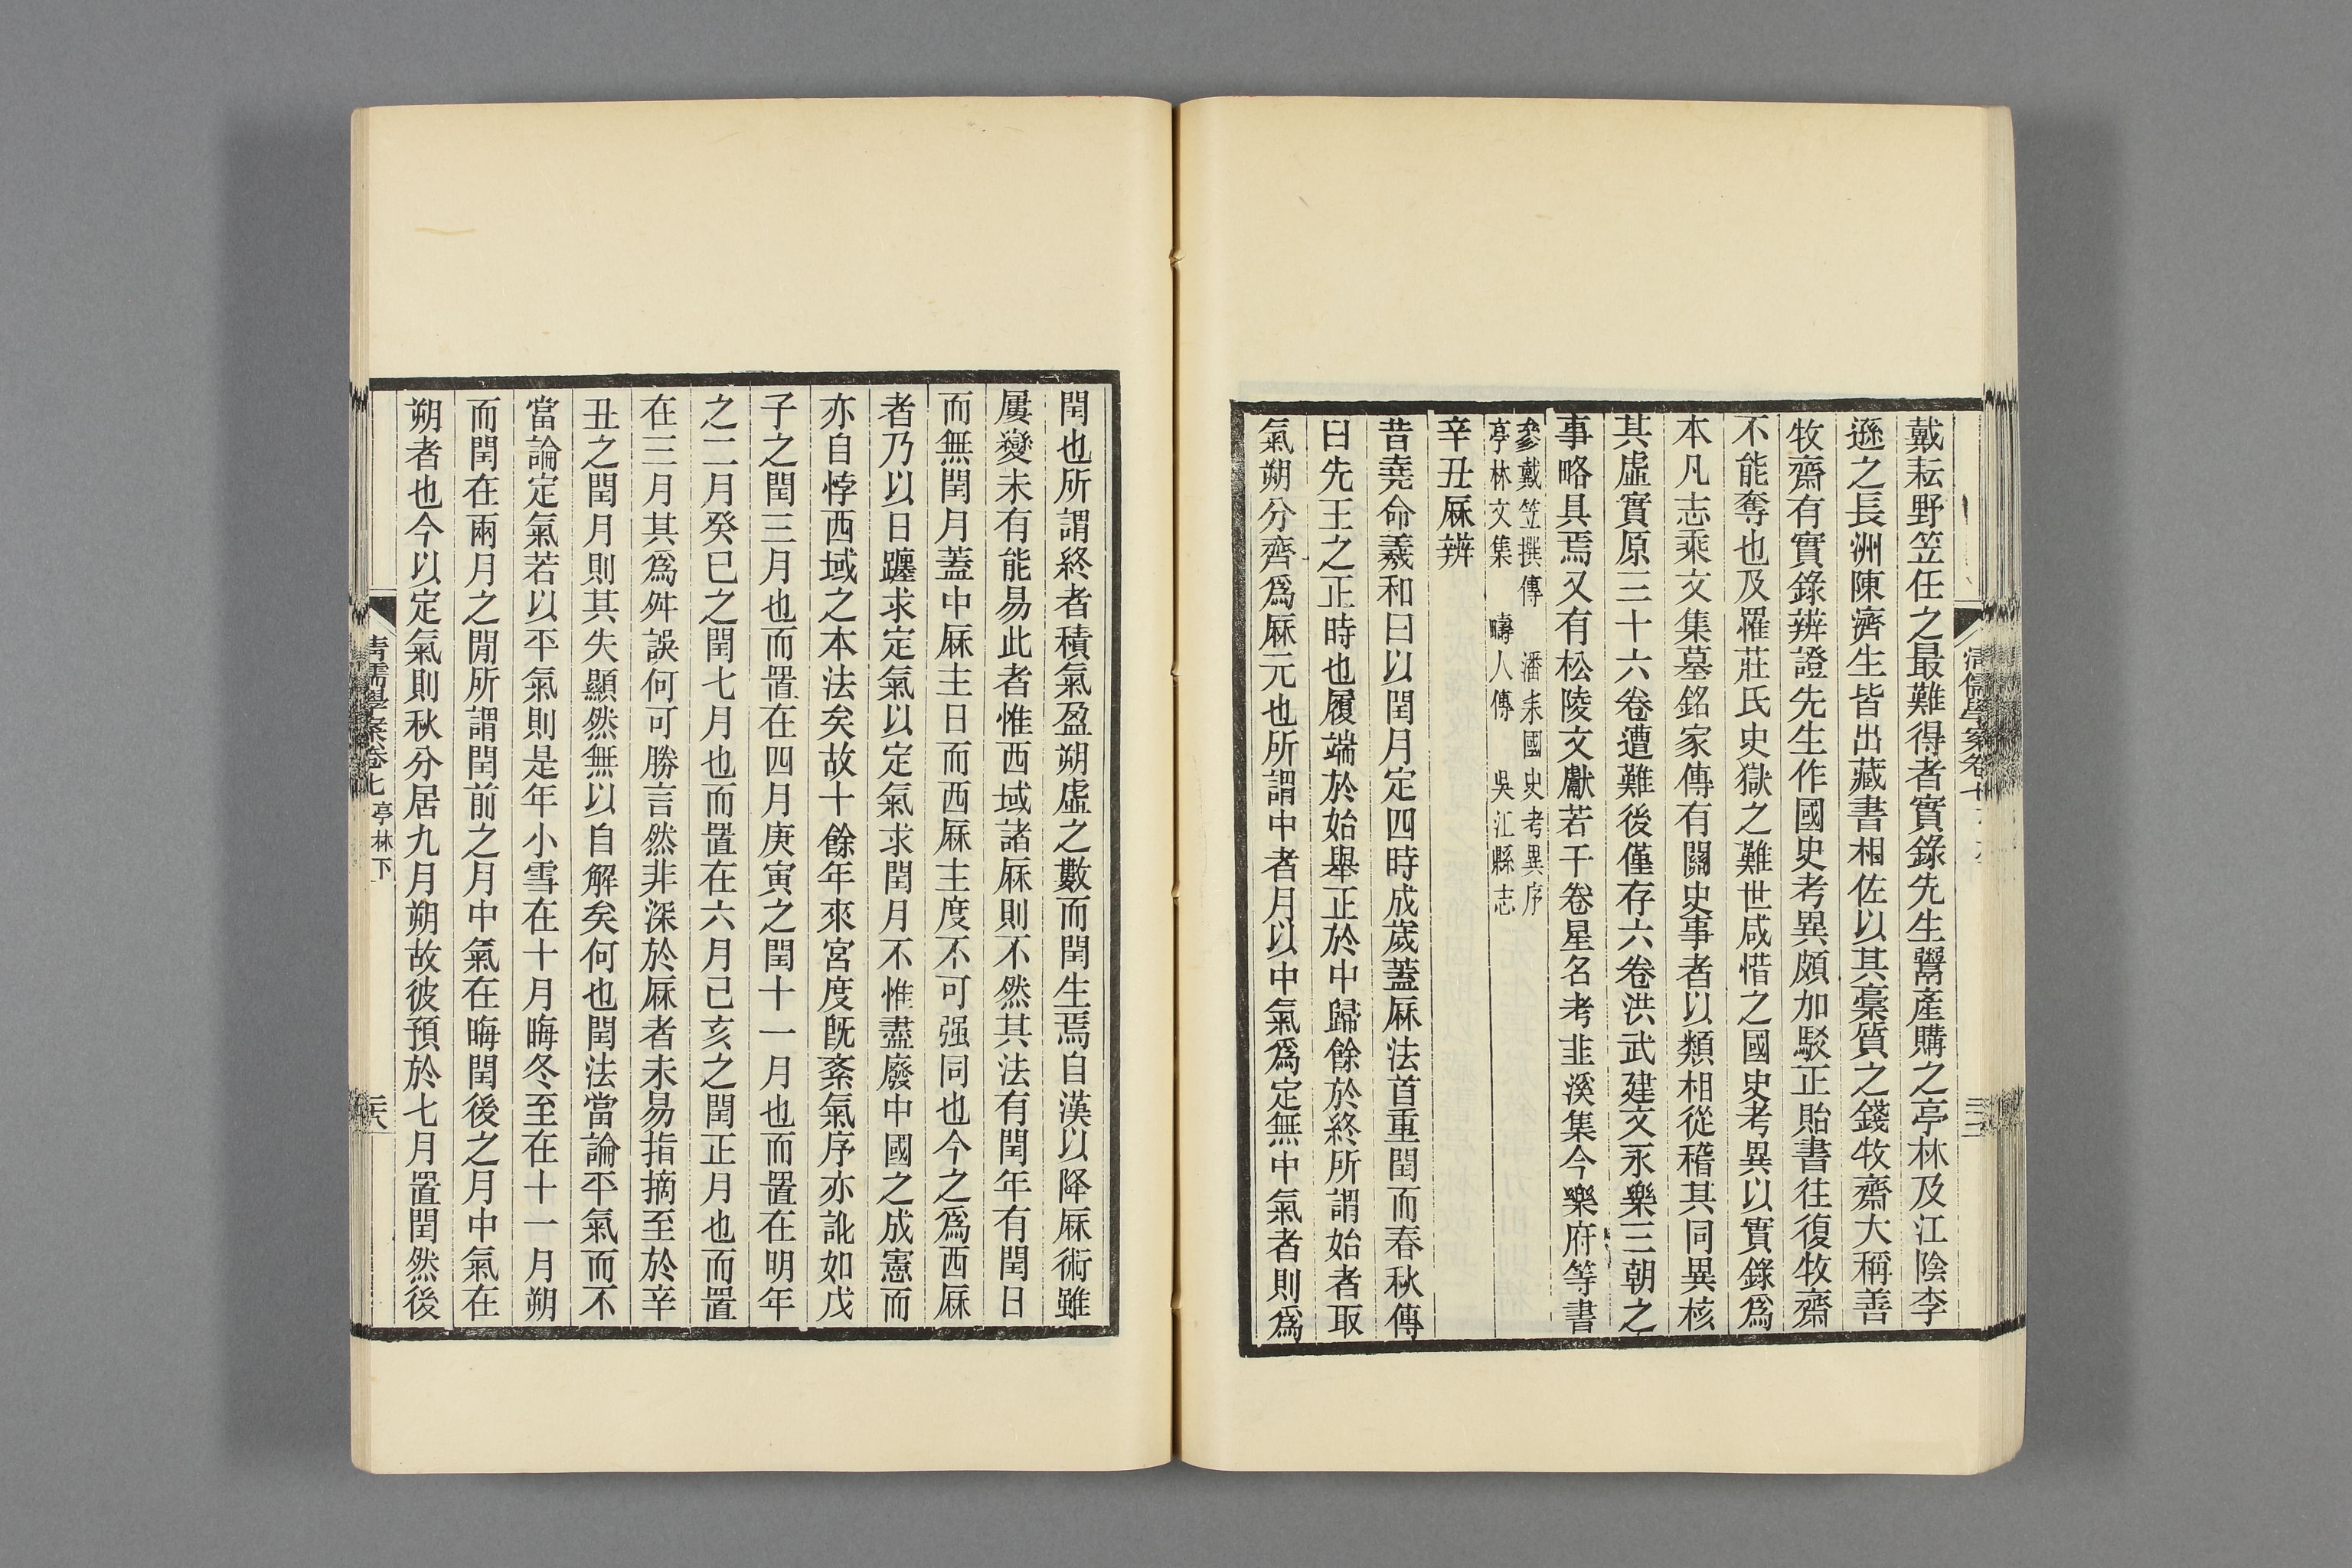 戴耘野笠任之最難得者實錄先生鬻產購之亭林及江陰李
遜之長洲陳濟生皆出藏書相佐以其稾質之錢牧齋大稱善
牧齋有實錄辨證先生作國史考異頗加駁正貽書往復牧齋
不能奪也及罹莊氏史獄之難世咸惜之國史考異以實錄爲
本凡志乘文集墓銘家傳有關史事者以類相從稽其同異核
其虛實原三十六卷遭難後僅存六卷洪武建文永樂三朝之
事略具焉又有松陵文獻若干卷星名考韭溪集今樂府等書
參戴笠撰傳　潘耒國史考異序
亭林文集　疇人傳　吳江縣志
辛丑厤辨
昔堯命羲和曰以閏月定四時成歲蓋厤法首重閏而春秋傳
曰先王之正時也履端於始舉正於中歸餘於終所謂始者取
氣朔分齊爲厤元也所謂中者月以中氣爲定無中氣者則爲
閏也所謂終者積氣盈朔虛之數而閏生焉自漢以降厤術雖
屢變未有能易此者惟西域諸厤則不然其法有閏年有閏日
而無閏月蓋中厤主日而西厤主度不可强同也今之爲西厤
者乃以日躔求定氣以定氣求閏月不惟盡廢中國之成憲而
亦自悖西域之本法矣故十餘年來宮度旣紊氣序亦訛如戊
子之閏三月也而置在四月庚寅之閏十一月也而置在明年
之二月癸巳之閏七月也而置在六月己亥之閏正月也而置
在三月其爲舛誤何可勝言然非深於厤者未易指摘至於辛
丑之閏月則其失顯然無以自解矣何也閏法當論平氣而不
當論定氣若以平氣則是年小雪在十月晦冬至在十一月朔
而閏在兩月之閒所謂閏前之月中氣在晦閏後之月中氣在
朔者也今以定氣則秋分居九月朔故彼預於七月置閏然後
清儒學案卷七 亭林下